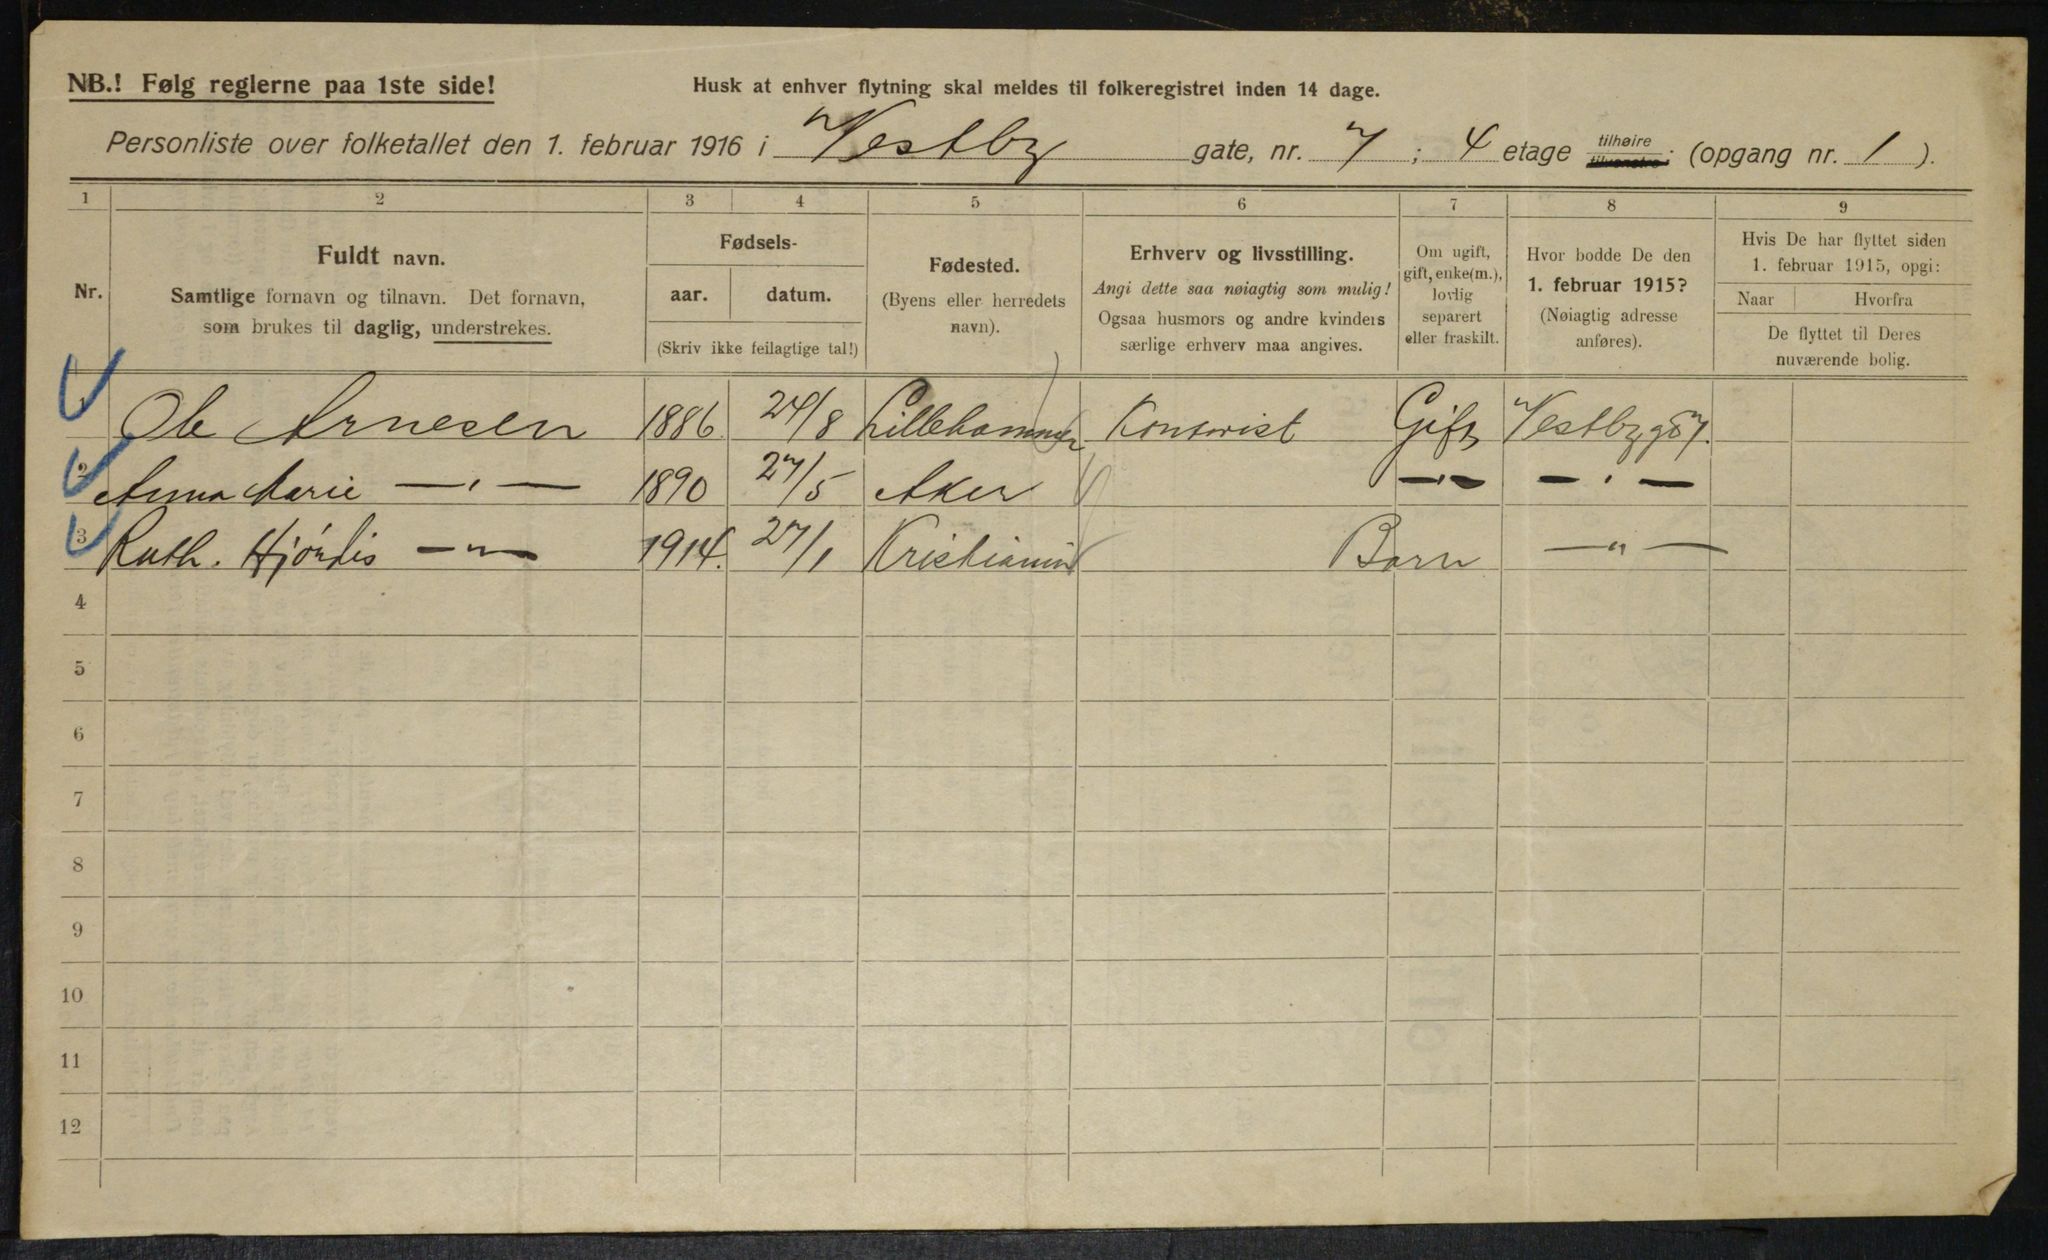 NB.! Følg reglerne paa 1ste side!
Husk at enhver flytning skal meldes til folkeregistret inden 14 dage.
Personliste over folketallet den 1. februar 1916 i Vestby gate, nr. 7 ; 4 etage tilhøire tilvenstre ; (opgang nr. 1 ).
1 2 3 4 5 6 7 8 9
Nr.
Fuldt navn.
Samtlige fornavn og tilnavn. Det fornavn,
som brukes til daglig, understrekes.
Fødsels-
aar. datum.
(Skriv ikke feilagtige tal!)
Fødested.
(Byens eller herredets
navn).
Erhverv og livsstilling.
Angi dette saa nøiagtig som mulig!
Ogsaa husmors og andre kvinders
særlige erhverv maa angives.
Om ugift,
gift, enke(m.),
lovlig
separert
eller fraskilt.
Hvor bodde De den
1. februar 1915?
(Nøiagtig adresse
anføres).
Hvis De har flyttet siden
1. februar 1915, opgi:
Naar Hvorfra
De flyttet til Deres
nuværende bolig.
1 Ole Arnesen 1886 24/8 Lillehammer Gift Vestbyg 7.
2 Anna Marie — " — 1890 27/5 Aker — " — — " —
3 Ruth. Hjördis — " — 1914. 27/1 Kristiania Barn — " —
4
5
6
7
8
9
10
11
12